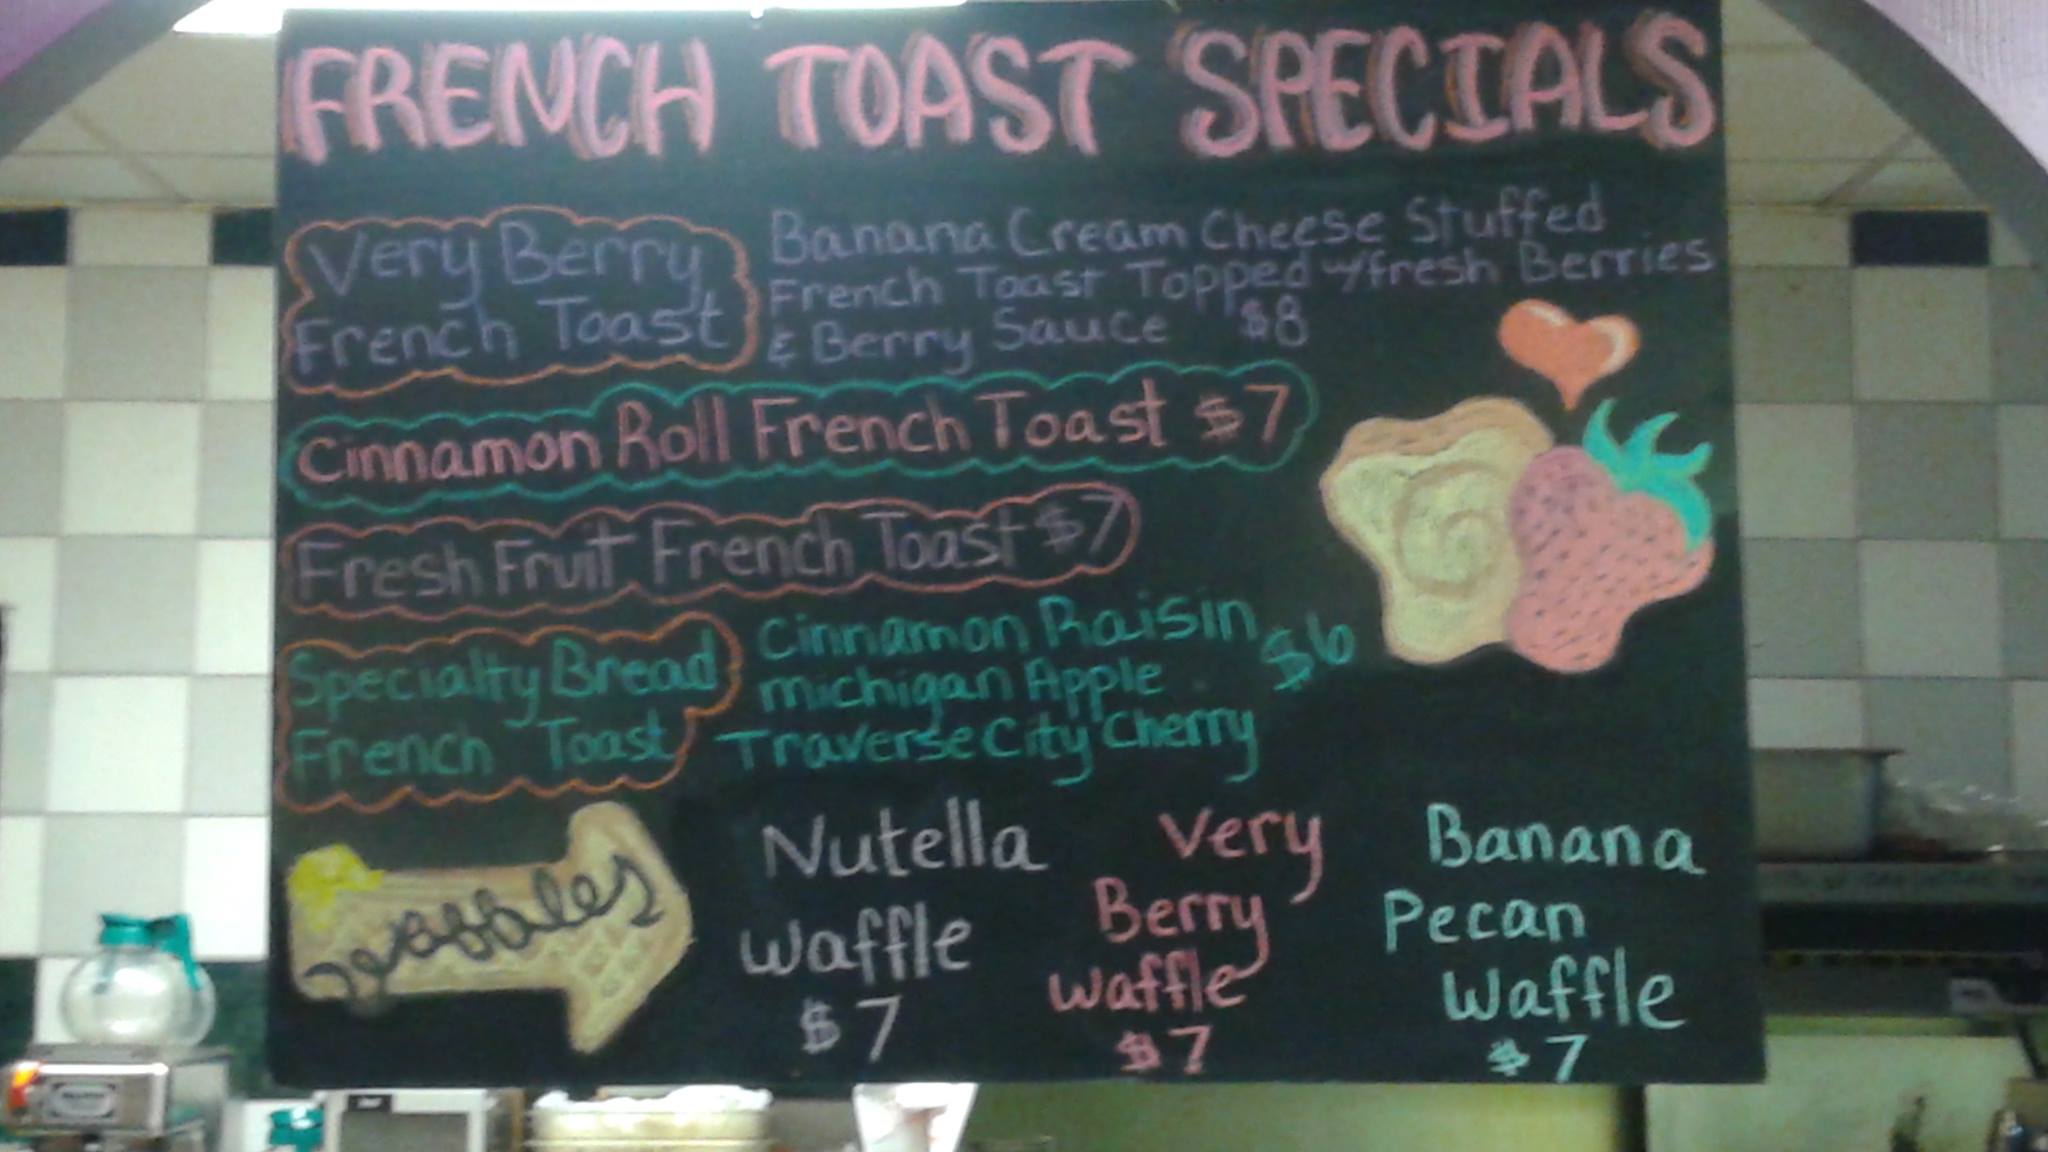 FRENCH TOAST SPECIALS
Very Berry
French Toast
Banana Cream Cheese Stuffed
French Toast Topped w/fresh Berries
& Berry Sauce $8
Cinnamon Roll French Toast $7
Fresh Fruit French Toast $7
Specialty Bread
French Toast
Cinnamon Raisin
michigan Apple $6
Traverse City Cherry
waffles
Nutella
Waffle
$7
Very
Berry
Waffle
$7
Banana
Pecan
Waffle
$7